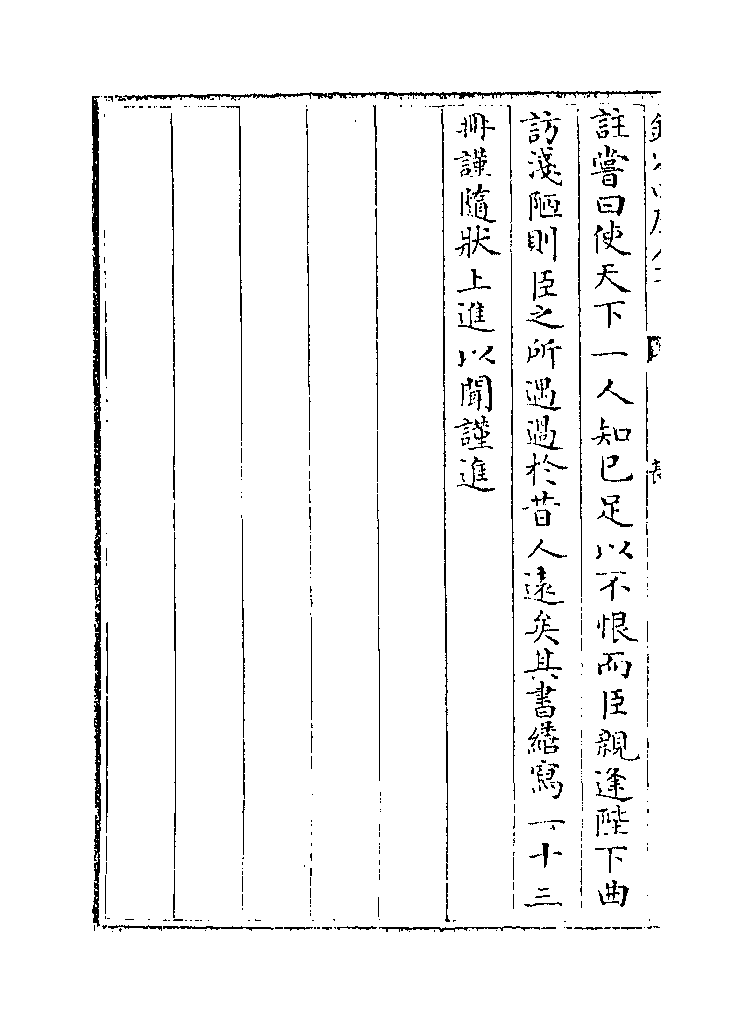 註嘗曰使天下一人知已足以不恨而臣親逢陛下曲
訪淺陋則臣之所遇過於昔人遠矣其書繕寫一十三
冊謹隨狀上進以聞謹進